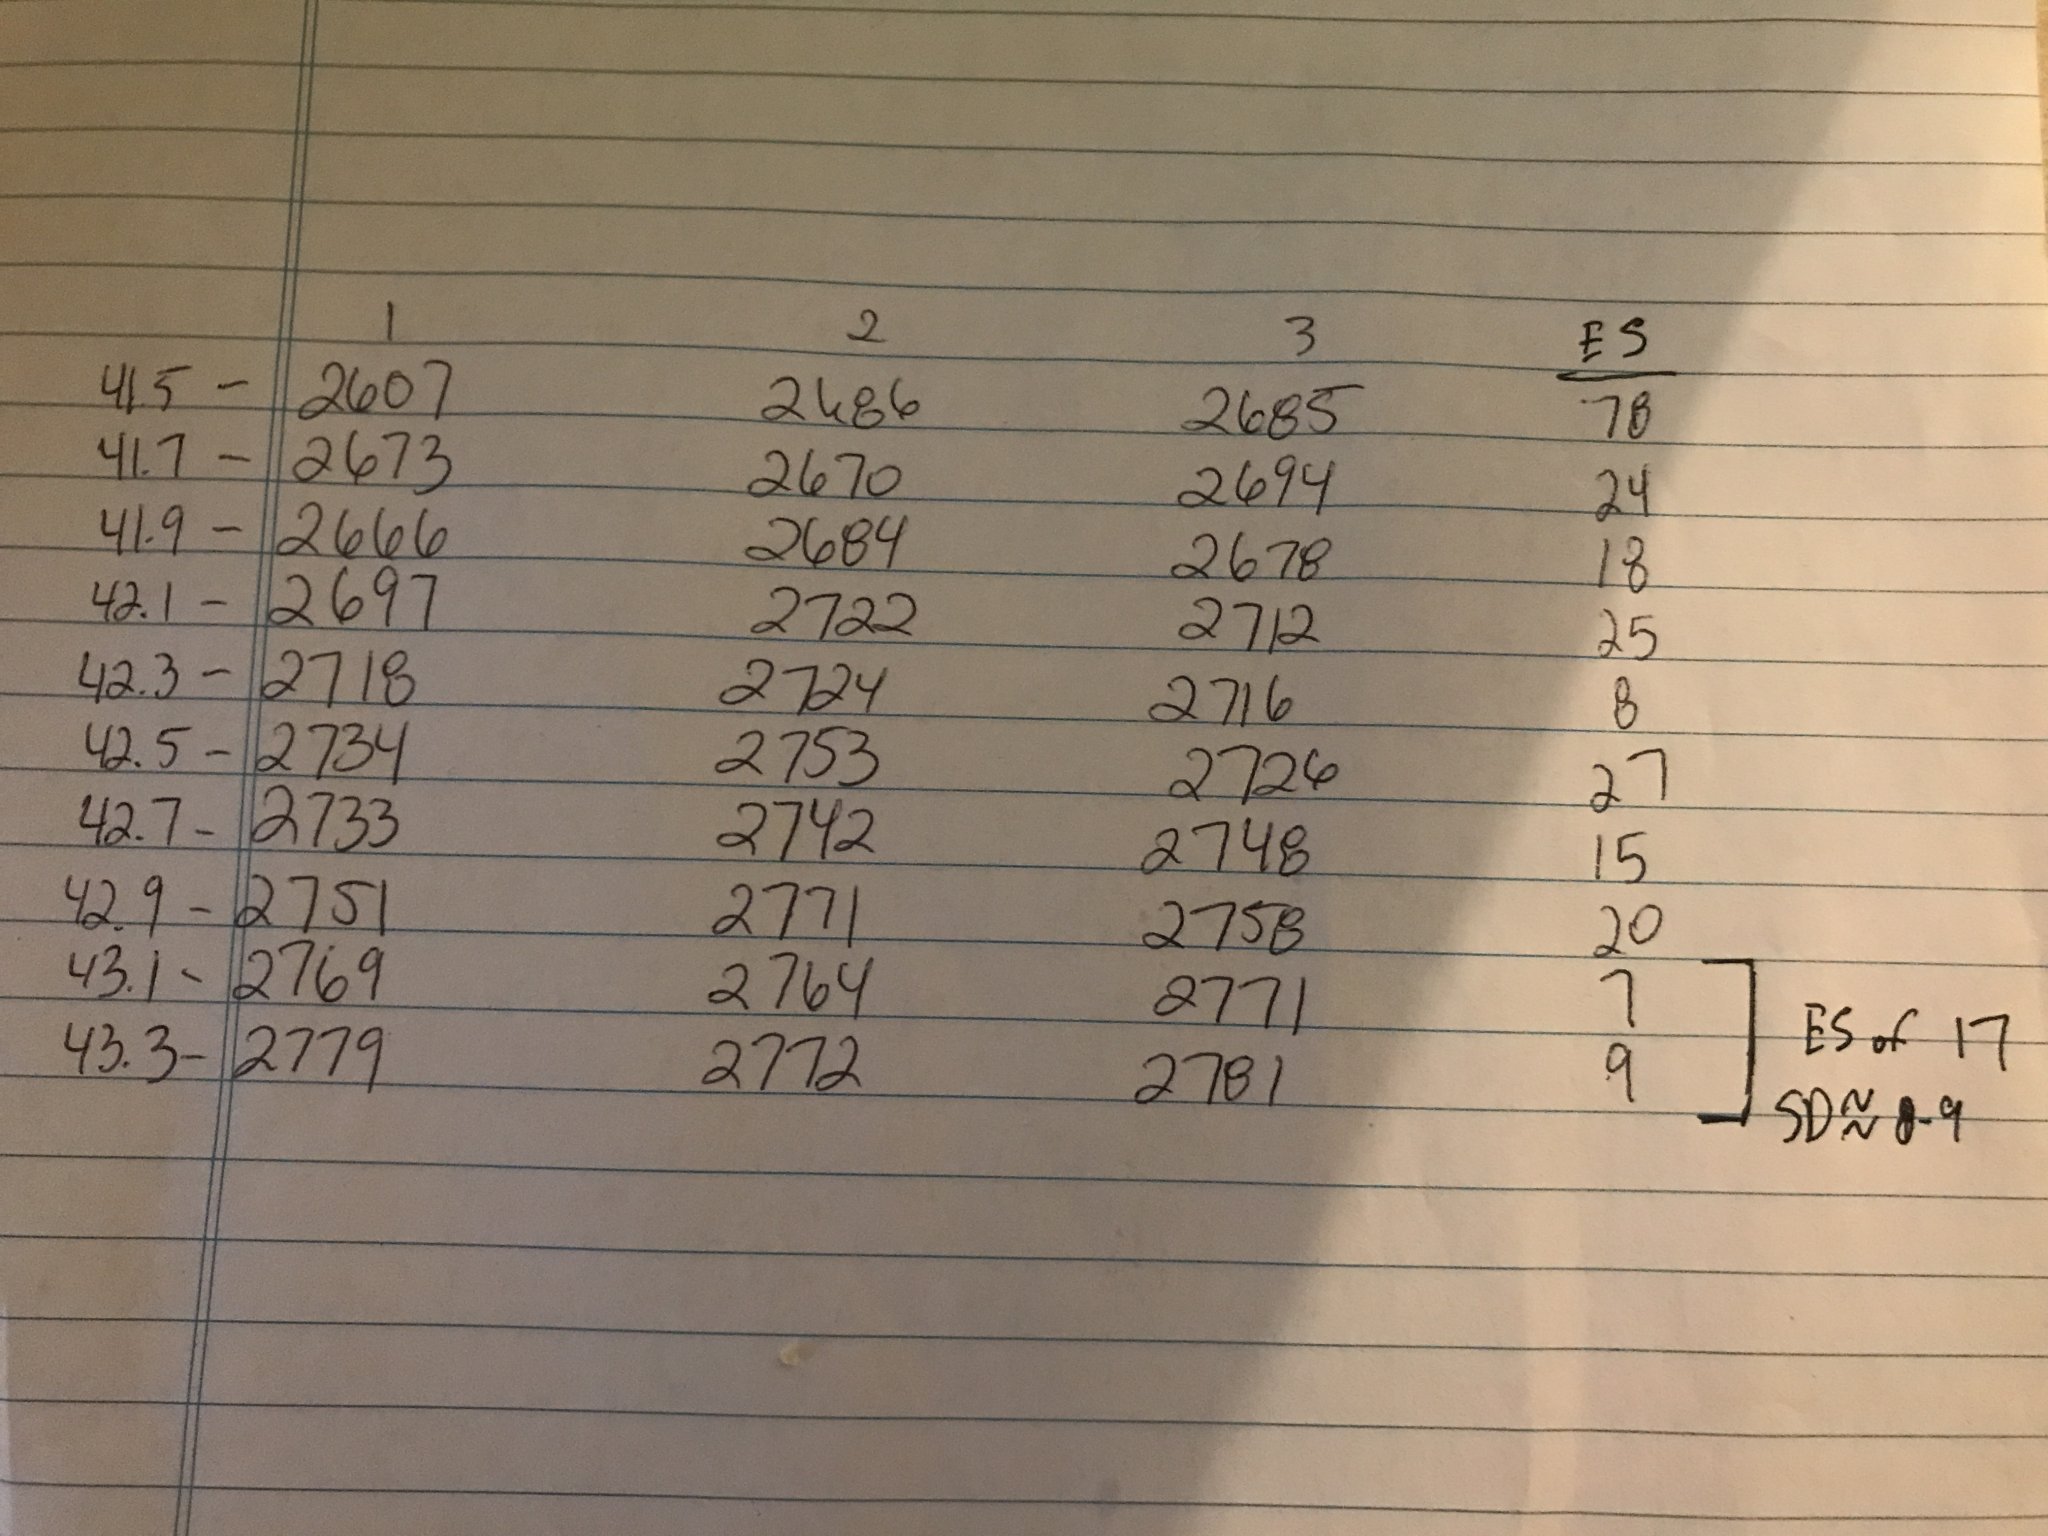 1 2 3 ES
41.5 - 2607 2686 2685 78
41.7 - 2673 2670 2694 24
41.9 - 2666 2684 2678 18
42.1 - 2697 2722 2712 25
42.3 - 2718 2724 2716 8
42.5 - 2734 2753 2726 27
42.7 - 2733 2742 2748 15
42.9 - 2751 2771 2758 20
43.1 - 2769 2764 2771 7
43.3 - 2779 2772 2781 9
ES of 17
SD ≈